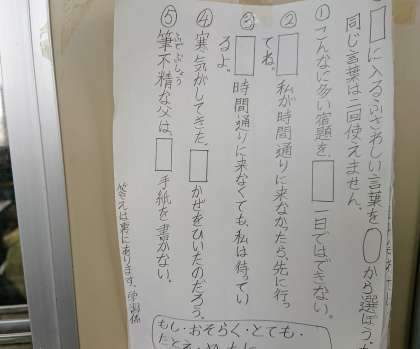 □に入るふさわしい言葉を○から選ぼう
同じ言葉は二回使えません。
①こんなに多い宿題を、□一日ではできない。
②□私が時間通りに来なかったら、先に行っ
てね。
③□時間通りに来なくても、私は待ってい
るよ。
④寒気がしてきた。□かぜをひいたのだろう。
⑤筆不精な父は、□手紙を書かない。
ふでぶしょう
答えは裏にあります。学習係
もし・おそらく・とても・